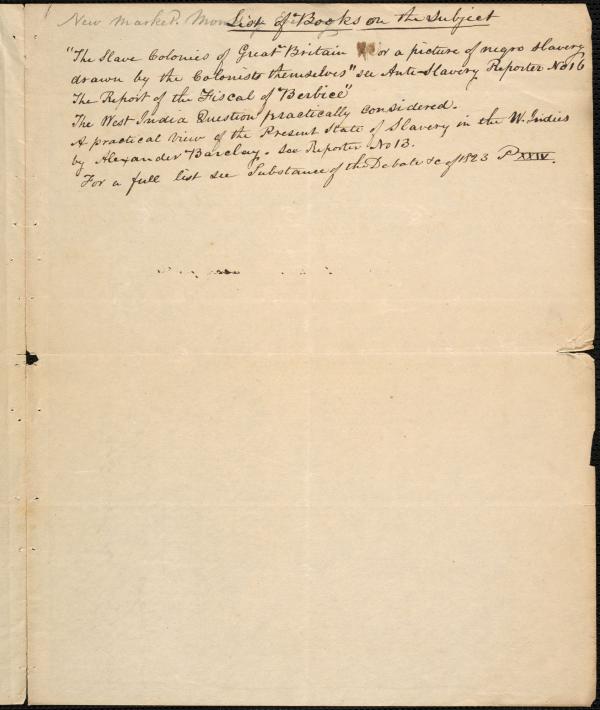 New Market. List of Books on the Subject
"The Slave Colonies of Great Britain or a picture of negro slavery
drawn by the Colonists themselves" see Anti-Slavery Reporter No 16
The Report of the Fiscal of "Berbice"
The West India Question practically considered.
A practical view of the Present State of Slavery in the W. Indies
by Alexander Barclay. see Reporter No 13.
For a full list see Substance of the Debate &c of 1823 P XXIV.